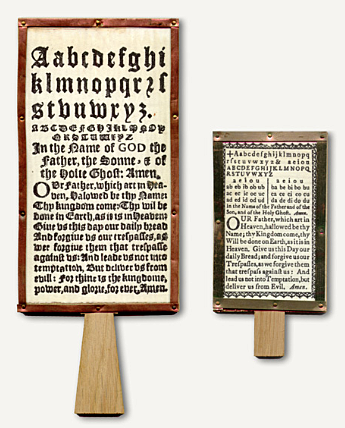 Aabcdefghi
klmnopqrꝛſ
stvuwxyz.
ABCDEFGHIJKLMNOP
QRSTUVWXYZ
In the Name of GOD the
Father, the Sonne, & of
the Holie Ghost: Amen.
OUr Father, which art in Hea-
ven, Halowed be thy Name:
Thy kingdome come: Thy wil be
done in Earth, as it is in Heaven:
Give vs this day our daily bread
And forgive vs our trespasses, as
wee forgive them that trespasse
against vs: And leade vs not into
temptation, But deliver vs from
evill: For thine is the kingdome,
power, and glorie, for ever, Amen.
✠Aabcdefghijklmnopq
rſstuvwxyz& aeiou
ABCDEFGHIJKLMNOPQ
RSTUVWXYZ
a e i o u a e i o u
ab eb ib ob ub ba be bi bo bu
ac ec ic oc uc ca ce ci co cu
ad ed id od ud da de di do du
in the Name of the Father and of the
Son, and of the Holy Ghost. Amen.
OUR Father, which art in
Heaven, hallowed be thy
Name; thy Kingdom come, thy
Will be done on Earth, as it is in
Heaven. Give us this Day our
daily Bread; and forgive us our
Treſpaſſes, as we forgive them
that treſpaſs againſt us: And
lead us not into Temptation, but
deliver us from Evil. Amen.